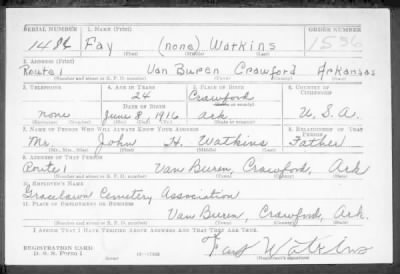 SERIAL NUMBER 1. NAME (Print) ORDER NUMBER
1486 Fay (none) Watkins 1556
(First) (Middle) (Last)
2. ADDRESS (Print)
Route 1 Van Buren Crawford Arkansas
(Number and street or R. F. D. number) (Town) (County) (State)
3. TELEPHONE 4. AGE IN YEARS 5. PLACE OF BIRTH 6. COUNTRY OF CITIZENSHIP
24 Crawford
(Town or county)
DATE OF BIRTH
none June 8 1916 Ark U.S.A.
(Exchange) (Number) (Mo.) (Day) (Yr.) (State or country)
7. NAME OF PERSON WHO WILL ALWAYS KNOW YOUR ADDRESS 8. RELATIONSHIP OF THAT PERSON
Mr. John H. Watkins Father
(Mr., Mrs., Miss) (First) (Middle) (Last)
9. ADDRESS OF THAT PERSON
Route 1 Van Buren, Crawford, Ark
(Number and street or R. F. D. number) (Town) (County) (State)
10. EMPLOYER'S NAME
Gracelawn Cemetery Association
11. PLACE OF EMPLOYMENT OR BUSINESS
Van Buren, Crawford, Ark.
(Number and street or R. F. D. number) (Town) (County) (State)
I AFFIRM THAT I HAVE VERIFIED ABOVE ANSWERS AND THAT THEY ARE TRUE.
REGISTRATION CARD
D. S. S. Form 1
Fay Watkins
(Registrant's signature)